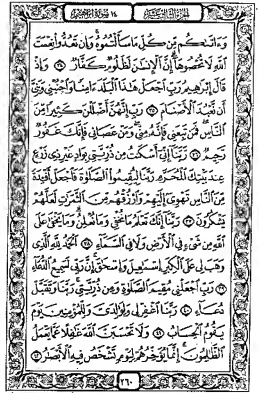 الجزء الثالث عشر ١٤ سورة إبراهيم
وَءَاتَىٰكُم مِّن كُلِّ مَا سَأَلْتُمُوهُ وَإِن تَعُدُّوا۟ نِعْمَتَ
ٱللَّهِ لَا تُحْصُوهَآ إِنَّ ٱلْإِنسَٰنَ لَظَلُومٌ كَفَّارٌ ٣٤ وَإِذْ
قَالَ إِبْرَٰهِيمُ رَبِّ ٱجْعَلْ هَٰذَا ٱلْبَلَدَ ءَامِنًا وَٱجْنُبْنِى وَبَنِىَّ
أَن نَّعْبُدَ ٱلْأَصْنَامَ ٣٥ رَبِّ إِنَّهُنَّ أَضْلَلْنَ كَثِيرًا مِّنَ
ٱلنَّاسِ فَمَن تَبِعَنِى فَإِنَّهُۥ مِنِّى وَمَنْ عَصَانِى فَإِنَّكَ غَفُورٌ
رَّحِيمٌ ٣٦ رَّبَّنَآ إِنِّىٓ أَسْكَنتُ مِن ذُرِّيَّتِى بِوَادٍ غَيْرِ ذِى زَرْعٍ
عِندَ بَيْتِكَ ٱلْمُحَرَّمِ رَبَّنَا لِيُقِيمُوا۟ ٱلصَّلَوٰةَ فَٱجْعَلْ أَفْـِٔدَةً
مِّنَ ٱلنَّاسِ تَهْوِىٓ إِلَيْهِمْ وَٱرْزُقْهُم مِّنَ ٱلثَّمَرَٰتِ لَعَلَّهُمْ
يَشْكُرُونَ ٣٧ رَبَّنَآ إِنَّكَ تَعْلَمُ مَا نُخْفِى وَمَا نُعْلِنُ وَمَا يَخْفَىٰ عَلَى
ٱللَّهِ مِن شَىْءٍ فِى ٱلْأَرْضِ وَلَا فِى ٱلسَّمَآءِ ٣٨ ٱلْحَمْدُ لِلَّهِ ٱلَّذِى
وَهَبَ لِى عَلَى ٱلْكِبَرِ إِسْمَٰعِيلَ وَإِسْحَٰقَ إِنَّ رَبِّى لَسَمِيعُ ٱلدُّعَآءِ
٣٩ رَبِّ ٱجْعَلْنِى مُقِيمَ ٱلصَّلَوٰةِ وَمِن ذُرِّيَّتِى رَبَّنَا وَتَقَبَّلْ
دُعَآءِ ٤٠ رَبَّنَا ٱغْفِرْ لِى وَلِوَٰلِدَىَّ وَلِلْمُؤْمِنِينَ يَوْمَ
يَقُومُ ٱلْحِسَابُ ٤١ وَلَا تَحْسَبَنَّ ٱللَّهَ غَٰفِلًا عَمَّا يَعْمَلُ
ٱلظَّٰلِمُونَ إِنَّمَا يُؤَخِّرُهُمْ لِيَوْمٍ تَشْخَصُ فِيهِ ٱلْأَبْصَٰرُ ٤٢
٢٦٠